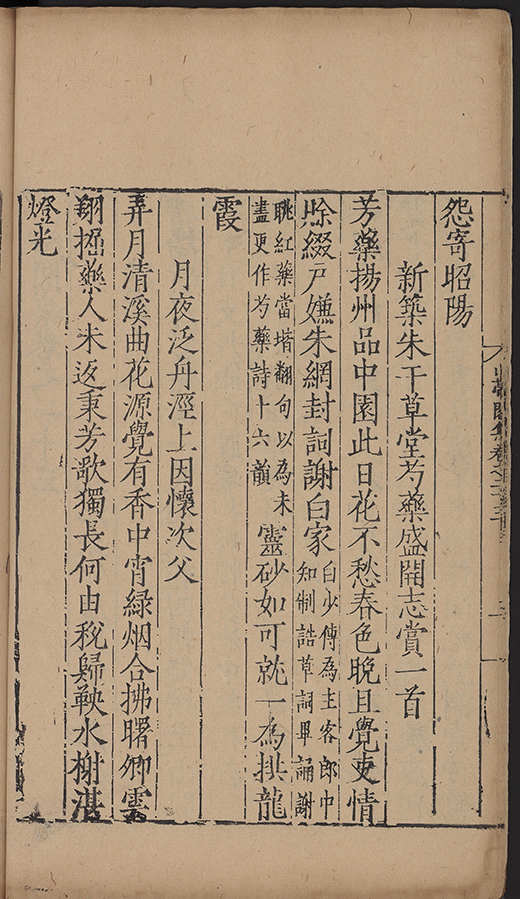 怨寄昭陽
新築朱干草堂芍藥盛開志賞一首
芳藥揚州品中園此日花不愁春色晚且覺吏情
賒綴戶嫌朱網封詞謝白家
白少傅為主客郎中
知制誥草詞畢誦謝
眺紅藥當堦翻句以為未
盡更作芍藥詩十六韻
靈砂如可就一為拱龍
霞
月夜泛舟涇上因懷次父
弄月清溪曲花源覺有香中宵綠烟合拂曙卿雲
翔掘藥人未返秉芳歌獨長何由稅歸鞅水榭湛
燈光